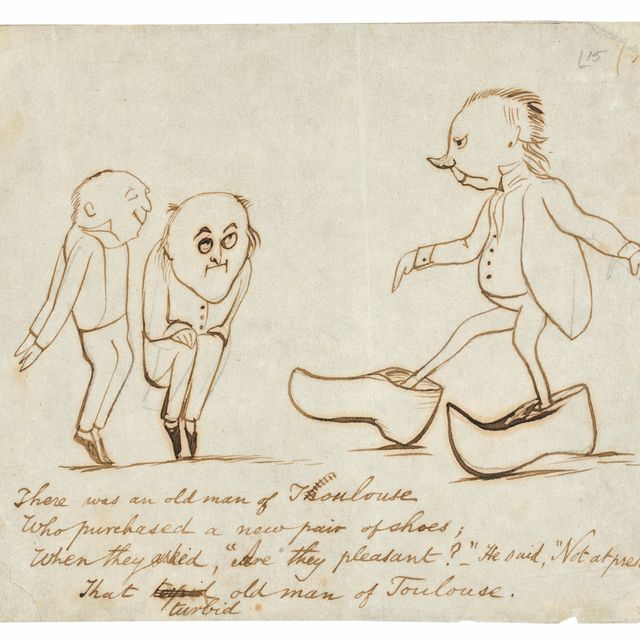 L15
There was an old man of Toulouse
Who purchased a new pair of shoes;
When they asked, "Are they pleasant?" – He said, "Not at pres
That turbid old man of Toulouse.